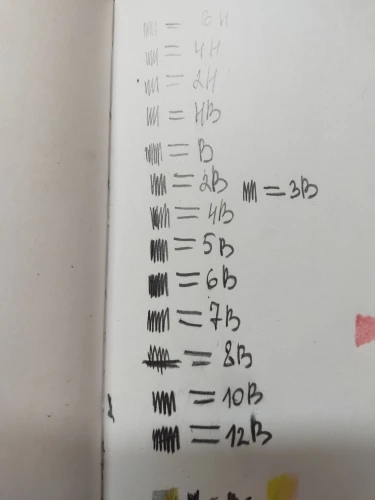 = 6H
= 4H
= 2H
= HB
= B
= 2B = 3B
= 4B
= 5B
= 6B
= 7B
= 8B
= 10B
= 12B